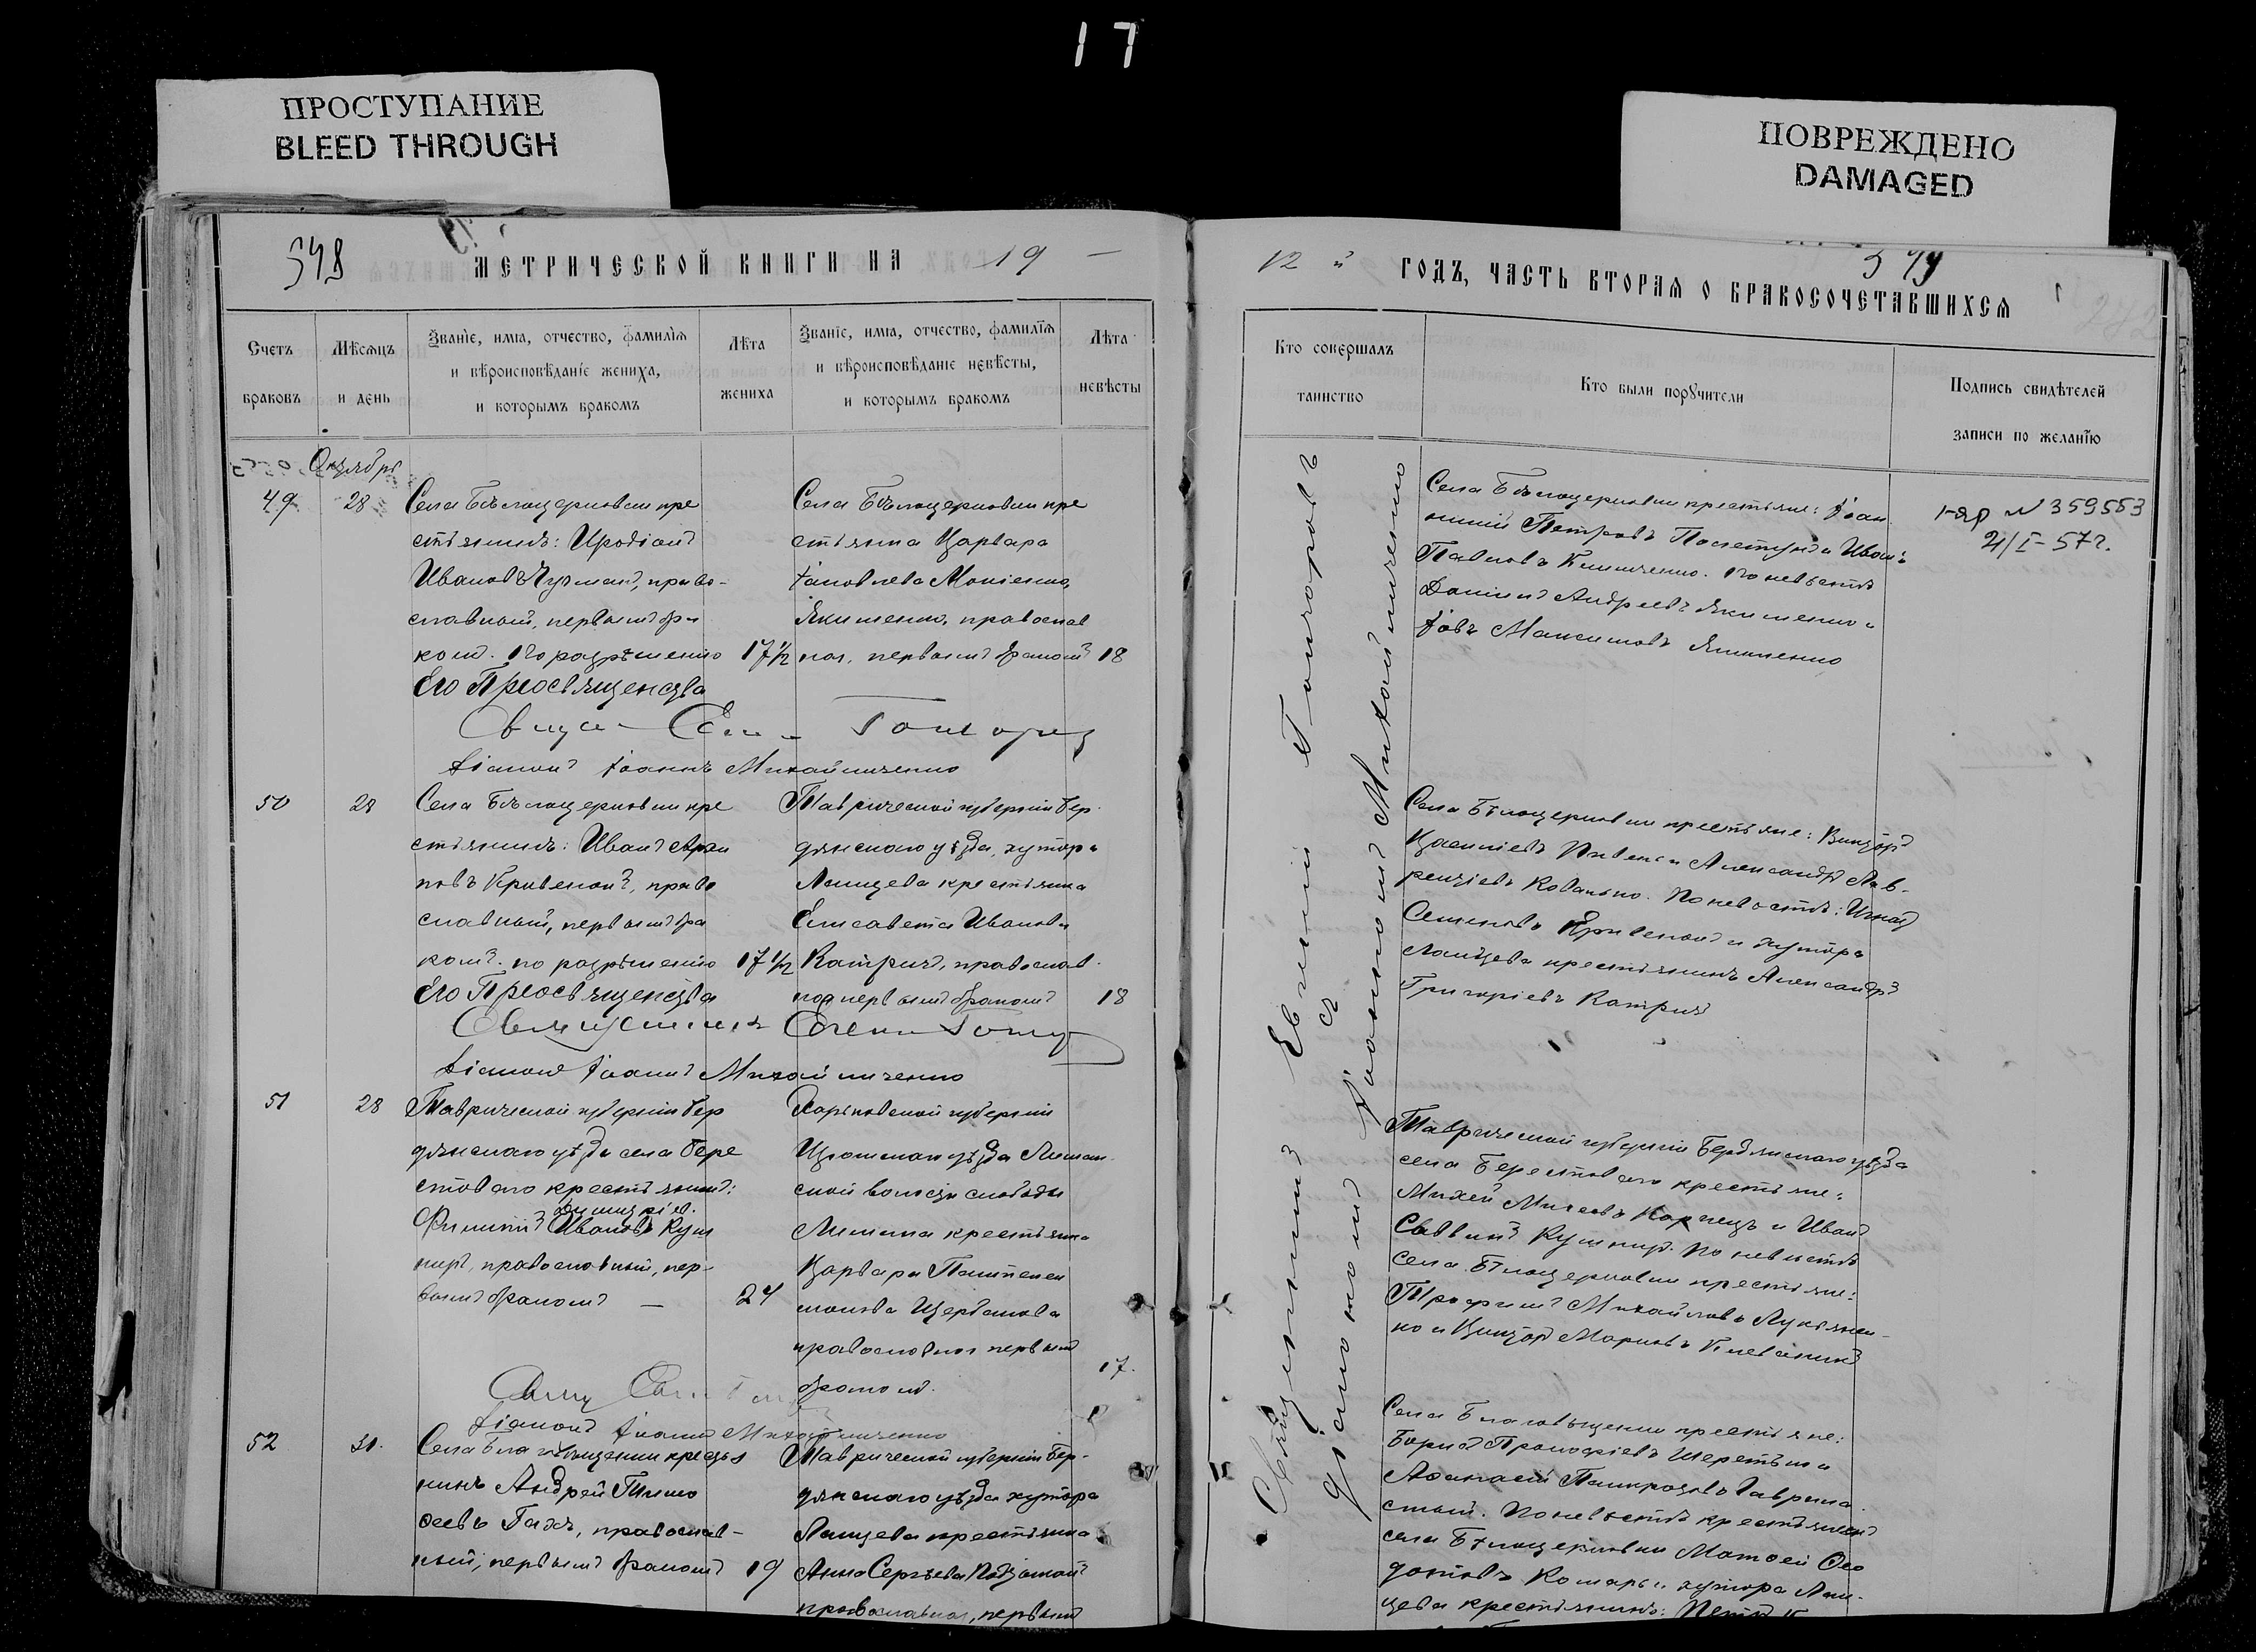 17
ПРОСТУПАНИЕ
BLEED THROUGH
ПОВРЕЖДЕНО
DAMAGED
548
МЕТРИЧЕСКОЙ КНИГИ НА 19
Счетъ
браковъ
Мѣсяцъ
и день
Званіе, имя, отчество, фамилія
и вѣроисповѣданіе жениха,
и которымъ бракомъ
Лѣта
жениха
Званіе, имя, отчество, фамилія
и вѣроисповѣданіе невѣсты,
и которымъ бракомъ
Лѣта
невѣсты
Октябрь
49
28
Села Бѣлоцерковки кре
стьянинъ: Иродіонъ
Ивановъ, право-
славный, первымъ бра
комъ. По разрѣшенію
Его Преосвященства
17 1/2
Села Бѣлоцерковки кре
стьянка Варвара
Іаковлева
Якименко, православ
ная, первымъ бракомъ
18
Діаконъ Іоаннъ Михайличенко
50
28
Села Бѣлоцерковки кре
стьянинъ: Иванъ Архи
повъ Кривенокъ, право
славный, первымъ бра
комъ. по разрѣшенію
Его Преосвященства
17 1/2
Таврической губерніи Бер-
дянскаго уѣзда, хутора
Ланцева крестьянка
Елисавета Иванова
Катричъ, православ
ная первымъ бракомъ
18
Діаконъ Іоаннъ Михайличенко
51
28
Таврической губерніи Бер
дянскаго уѣзда села Бере
стоваго крестьянинъ:
Димитріев.
Филиппъ Ивановъ Куш
ниръ, православный, пер-
вымъ бракомъ —
24
Харьковской губерніи
Изюмскаго уѣзда Лиман
ской волости слободы
Лимана крестьянка
Варвара Пантелеи
монова Щербакова
православная первымъ
бракомъ.
17.
Діаконъ Іоаннъ Михайличенко
52
31.
Села Благовѣщенки крестья
нинъ Андрей Тимо
ѳеевъ Гажъ, православ-
ный, первымъ бракомъ
19
Таврической губерніи Бер-
дянскаго уѣзда хутора
Ланцева крестьянка
Анна Сергѣева
православная, первымъ
12 й
ГОДЪ, ЧАСТЬ ВТОРАЯ О БРАКОСОЧЕТАВШИХСЯ
549
282
Кто совершалъ
таинство
Кто были поручители
Подпись свидѣтелей
записи по желанію
Священникъ Евгеній Гончаровъ
съ
діакономъ Іоанномъ Михайличенко
Села Бѣлоцерковки крестьяне: Іоан
никій Петровъ и Иванъ
Павловъ. По невѣстѣ
Даніилъ Андреевъ Якименко и
Іовъ Максимовъ Якименко
N 359553
21/I-57г.
Села Бѣлоцерковки крестьяне: Викторъ
Василіевъ и Александръ Лав-
рентіевъ Коваленко. По невѣстѣ: Игнатъ
Семеновъ Кривенокъ и хутора
Ланцева крестьянинъ Александръ
Григоріевъ Катричъ
Таврической губерніи Бердянскаго уѣзда
села Берестоваго крестьяне:
Михей Михеевъ Карпецъ и Иванъ
Саввинъ Кушниръ. По невѣстѣ
села Бѣлоцерковки крестьяне:
Трофимъ Михайловъ Лукьянен-
ко и Викторъ Марковъ
Села Благовѣщенки крестьяне:
Борисъ Прокофіевъ и
Аѳанасій Панкратовъ
По невѣстѣ крестьяне
села Бѣлоцерковки Матѳей Ѳео
дотовъ Комаръ и хутора Лан-
цева крестьянинъ: Петръ